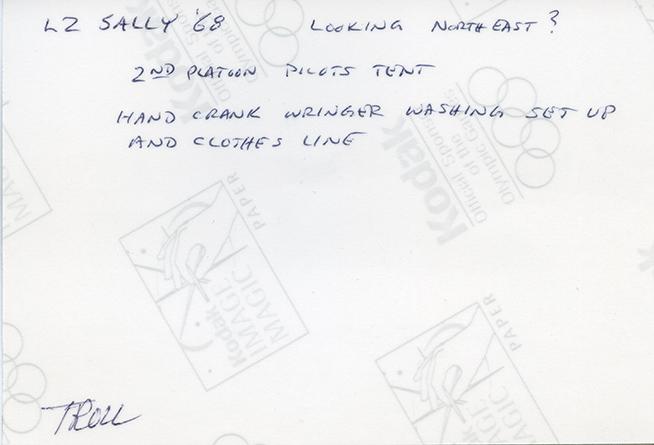 LZ SALLY '68 LOOKING NORTHEAST?
2ND PLATOON PILOTS TENT
HAND CRANK WRINGER WASHING SET UP
AND CLOTHES LINE
Kodak
Official Sponsor
of the
Olympic Games
Kodak
Official Sponsor
of the
Olympic Games
MAGIC
PAPER
Kodak
IMAGE
MAGIC
PAPER
Kodak
IMAGE
MAGIC
PAPER
TROLL